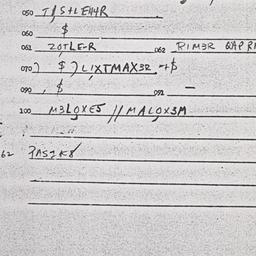 050 T/S+LEHHR
060 $
061 ZOTLE-R 062 RIM3R QAPR
070) $) LIXTMAX3R +$
090 , $ 091 —
100 M3LOXES // MALOX3M
62 PASJK8